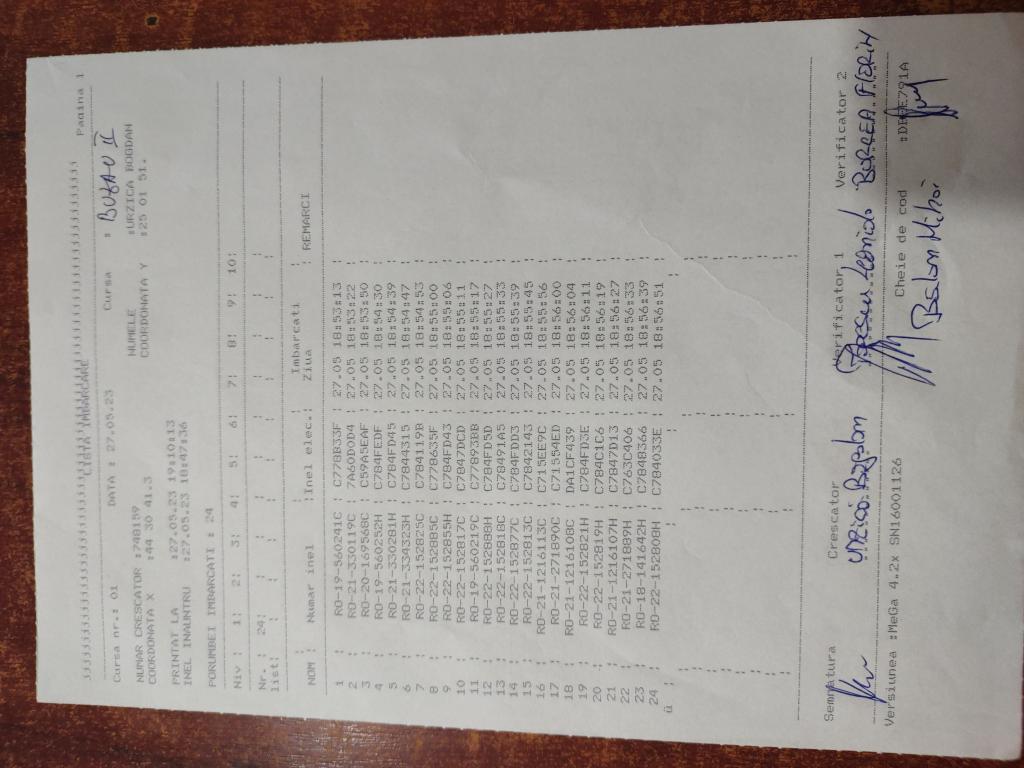 Pagina 1
LISTA IMBARCARE
Cursa nr.: 01 DATA : 27.05.23 Cursa : BUZAU II
NUMAR CRESCATOR :748159 NUMELE :URZICA BOGDAN
COORDONATA X :44 30 41.3 COORDONATA Y :25 01 51.
PRINTAT LA :27.05.23 19:10:13
INEL INAUNTRU :27.05.23 18:47:36
PORUMBEI IMBARCATI : 24
Niv : 1: 2: 3: 4: 5: 6: 7: 8: 9: 10:
Nr. : 24: : : : : : : : :
list: : : : : : : : : :
Imbarcati
NOM : Numar inel :Inel elec.: Ziua : REMARCI
1 : RO-19-560241C : C778B33F : 27.05 18:53:13 :
2 : RO-21-330119C : 7A60D0D4 : 27.05 18:53:22 :
3 : RO-20-169568C : C59A5EAF : 27.05 18:53:50 :
4 : RO-19-560252H : C784FEDF : 27.05 18:54:30 :
5 : RO-21-330281H : C784FD45 : 27.05 18:54:39 :
6 : RO-21-334323H : C7844315 : 27.05 18:54:47 :
7 : RO-22-152825C : C784119B : 27.05 18:54:53 :
8 : RO-22-152885C : C778635F : 27.05 18:55:00 :
9 : RO-22-152855H : C784FD43 : 27.05 18:55:06 :
10 : RO-22-152817C : C7847DCD : 27.05 18:55:11 :
11 : RO-19-560219C : C77893BB : 27.05 18:55:17 :
12 : RO-22-152888H : C784FD5D : 27.05 18:55:27 :
13 : RO-22-152818C : C78491A5 : 27.05 18:55:33 :
14 : RO-22-152877C : C784FDD3 : 27.05 18:55:39 :
15 : RO-22-152813C : C7842143 : 27.05 18:55:45 :
16 : RO-21-1216113C : C715EE9C : 27.05 18:55:56 :
17 : RO-21-271890C : C71554ED : 27.05 18:56:00 :
18 : RO-21-1216108C : DA1CF439 : 27.05 18:56:04 :
19 : RO-22-152821H : C784FD3E : 27.05 18:56:11 :
20 : RO-22-152819H : C784C1C6 : 27.05 18:56:19 :
21 : RO-21-1216107H : C7847D13 : 27.05 18:56:27 :
22 : RO-21-271889H : C763C406 : 27.05 18:56:33 :
23 : RO-18-141642H : C7848366 : 27.05 18:56:39 :
24 : RO-22-152808H : C784033E : 27.05 18:56:51 :
û :
Semnatura Crescator Verificator 1 Verificator 2
URZICA Bogdan Leonid FLORIN
Versiunea :MeGa 4.2x SN16001126 Cheie de cod
Balan Mihai